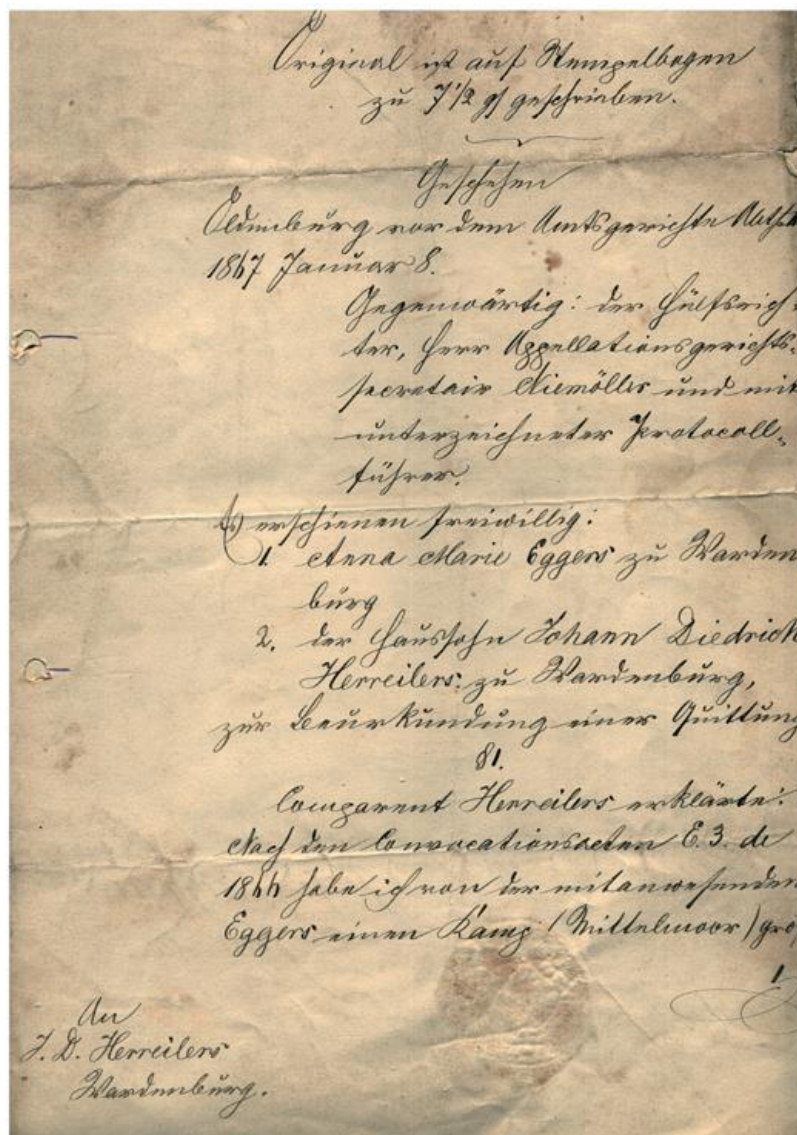 Original ist auf Stempelbogen
zu 7 1/2 gf geschrieben.
Geschehen
Oldenburg vor dem Amtsgerichte Abth.
1867 Januar 8.
Gegenwärtig: der Hülfsrich-
ter, Herr Appellationsgerichts-
secretair Niemöller und mit
unterzeichneter Protocoll-
führer.
Es erschienen freiwillig:
1. Anna Marie Eggers zu Warden
burg
2. der Haussohn Johann Diedrich
Herreilers zu Wardenburg,
zur Beurkundung einer Quittung
§1.
Comparent Herreilers erklärte:
Nach den Convocationsacten E. 3. de
1866 habe ich von der mitanwesenden
Eggers einen Kamp (Mittelmoor) gro
1
An
J. D. Herreilers
Wardenburg.